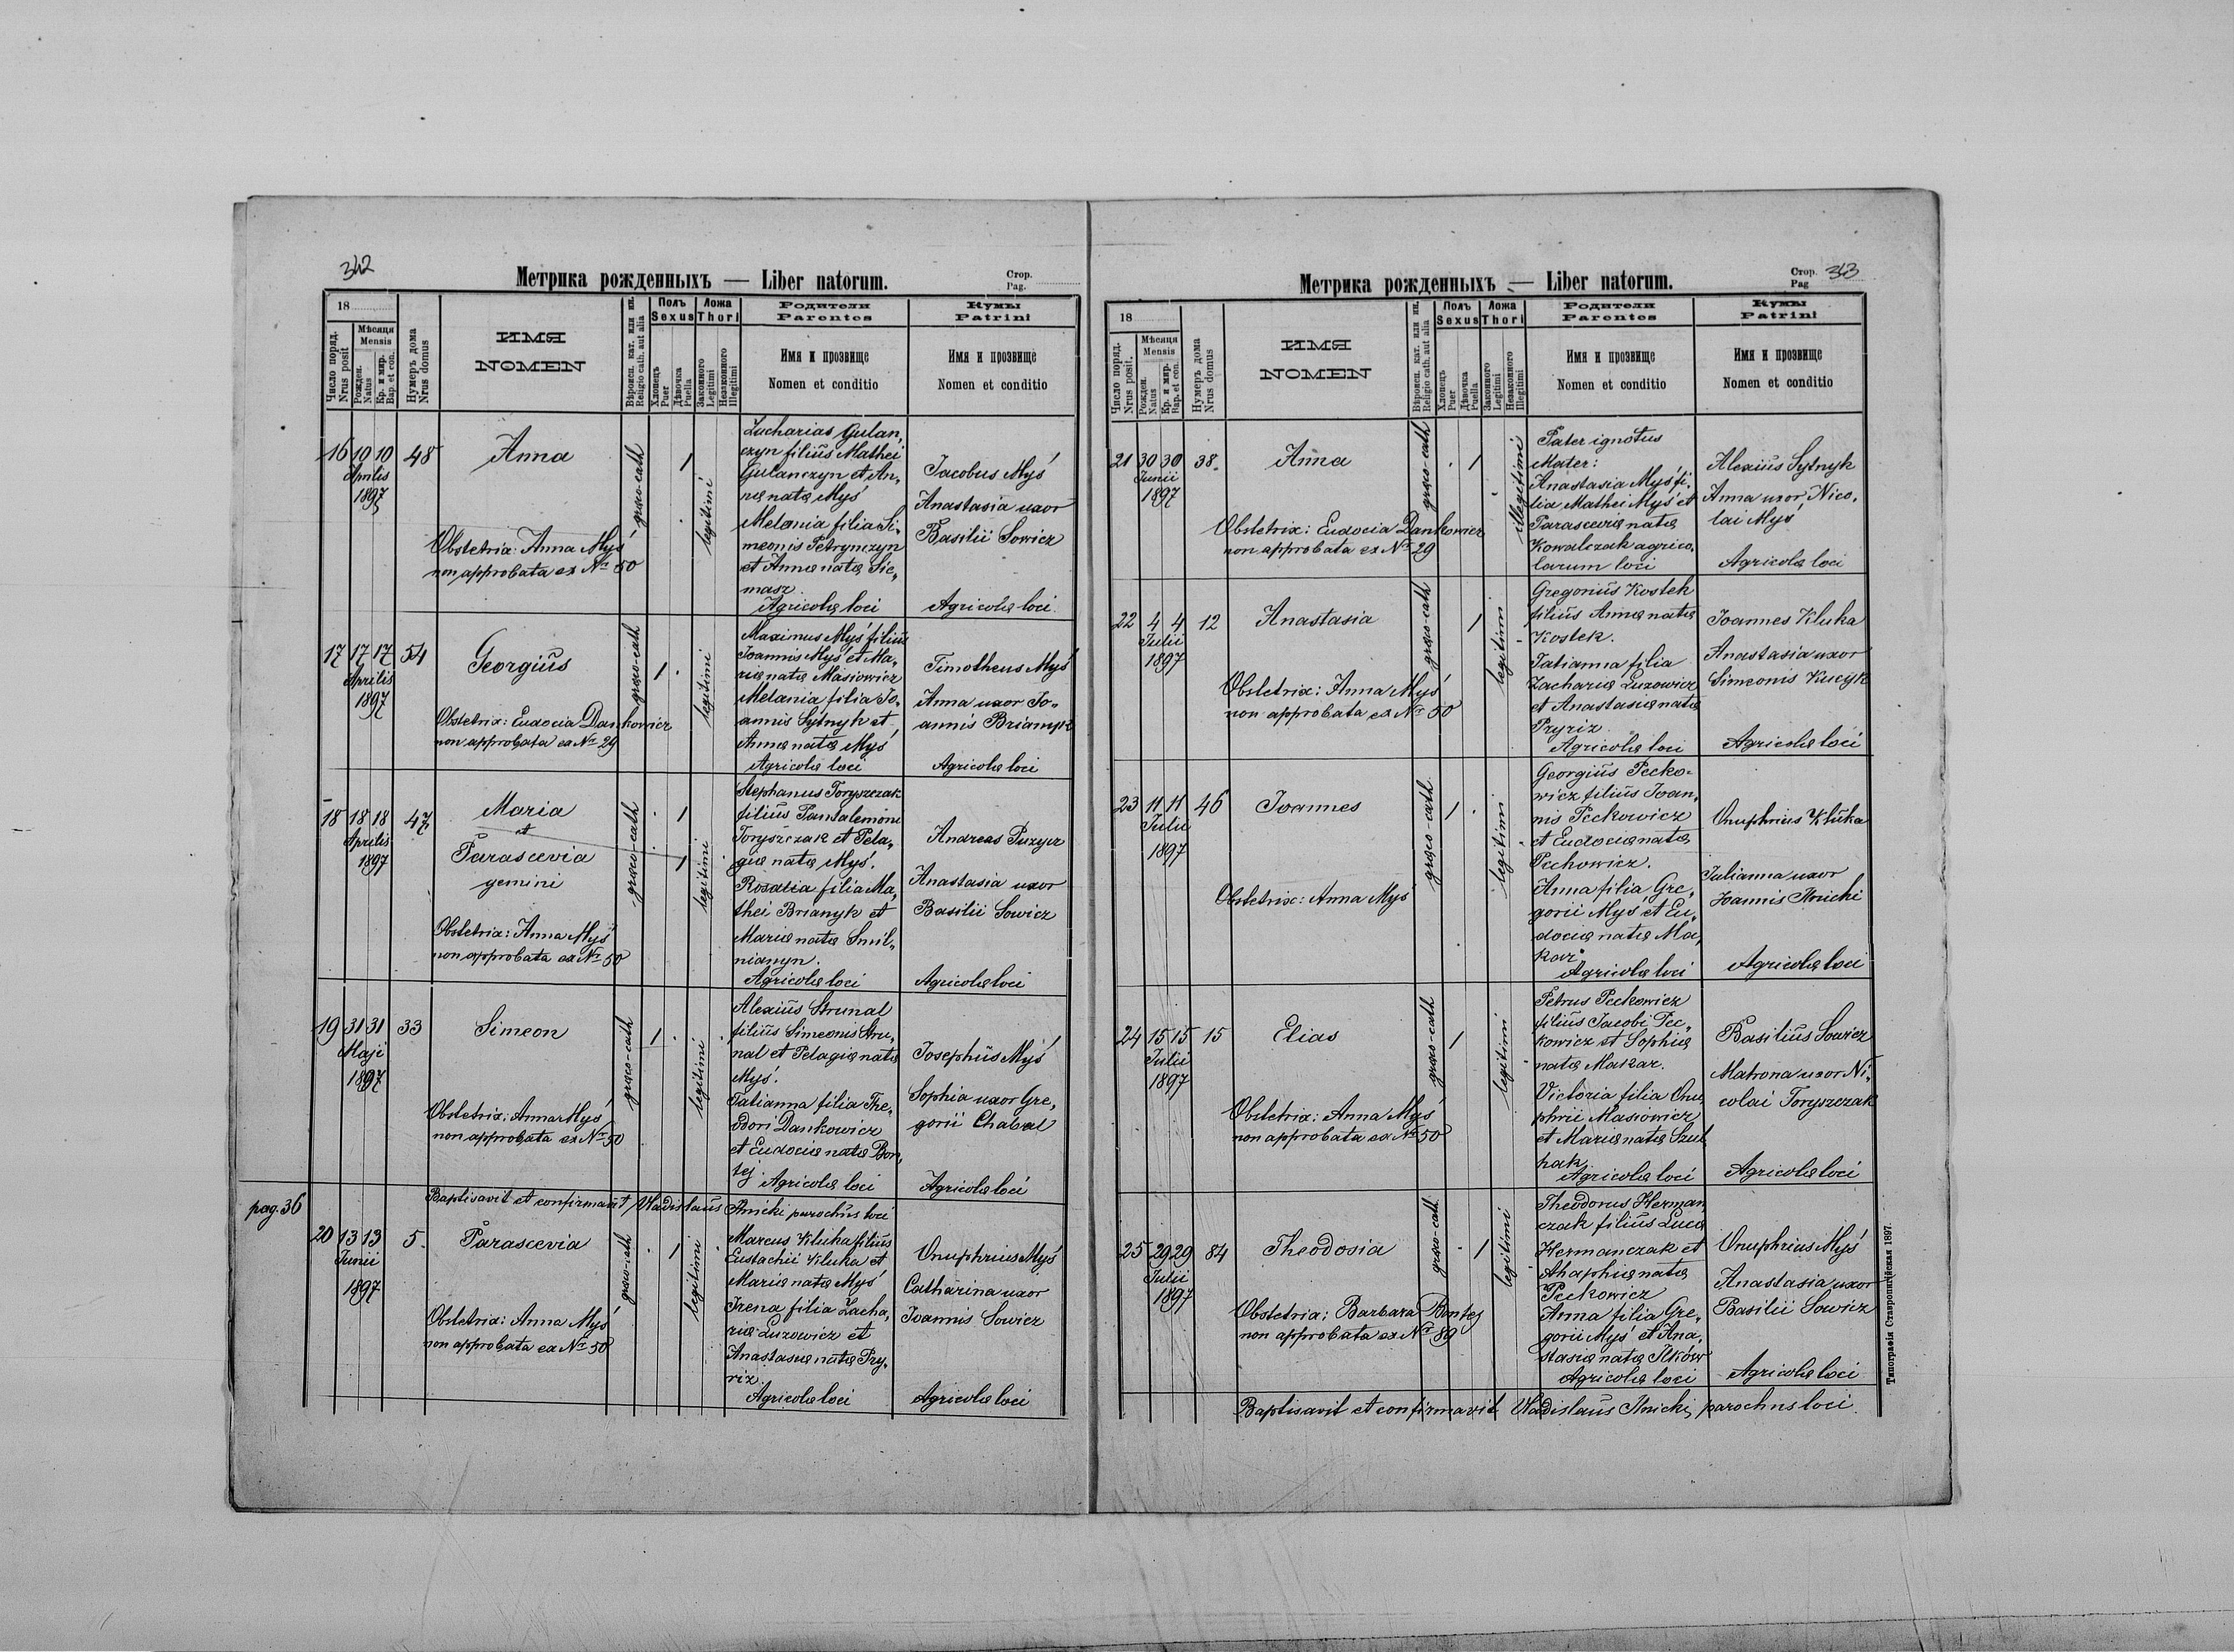 342
Метрика рожденныхъ — Liber natorum.
Стор.
Pag.
18
Число поряд.
Nrus posit
Мѣсяця
Mensis
Рожден.
Natus
Кр. и мир.
Bap. et con.
Нумеръ дома
Nrus domus
ИМЯ
NOMEN
Вѣроисп. кат. или ин.
Religio cath. aut alia
Полъ
Sexus
Хлопецъ
Puer
Дѣвочка
Puella
Ложа
Thori
Законного
Legitimi
Незаконного
Illegitimi
Родители
Parentes
Имя и прозвище
Nomen et conditio
Кумы
Patrini
Имя и прозвище
Nomen et conditio
16 10 10 48 Anna
Aprilis
1897
Obstetrix: Anna Myś
non approbata ex Nr 50
graeco-cath
1
legitimi
Zacharias Gulan„
czyn filius Mathei
Gulanczyn et An„
nae natae Myś
Melania filia Si„
meonis Petrynczyn
et Annae natae Sie„
masz.
Agricolae loci
Jacobus Myś
Anastasia uxor
Basilii Sowicz
Agricolae loci.
17 17 17 54 Georgius
Aprilis
1897
Obstetrix: Eudocia Dankowicz
non approbata ex Nr 29
graeco-cath
1
legitimi
Maximus Myś filius
Joannis Myś et Ma„
riae natae Masiowicz
Melania filia Jo„
annis Sytnyk et
Annae natae Myś
Agricolae loci
Timotheus Myś
Anna uxor Jo„
annis Brianyk
Agricolae loci
18 18 18 47 Maria
Aprilis
1897
et
Parascevia
gemini
Obstetrix: Anna Myś
non approbata ex Nr 50
graeco-cath
1
1
legitimi
Stephanus Toryszczak
filius Pantalemoni
Toryszczak et Pela„
giae natae Myś.
Rosalia filia Ma„
thei Brianyk et
Mariae natae Smil„
nianyn.
Agricolae loci
Andreas Puzyr
Anastasia uxor
Basilii Sowicz
Agricolae loci
19 31 31 33 Simeon
Maji
1897
Obstetrix: Anna Myś
non approbata ex Nr 50
graeco-cath
1
legitimi
Alexius Strunal
filius Simeonis Stru„
nal et Pelagiae natae
Myś.
Tatianna filia The„
odori Dankowicz
et Eudociae natae Bon„
tej. Agricolae loci
Josephus Myś
Sophia uxor Gre„
gorii Chabal
Agricolae loci
Baptisavit et confirmavit Wladislaus Ilnicki parochus loci
pag. 36
20 13 13 5. Parascevia
Junii
1897
Obstetrix: Anna Myś
non approbata ex Nr 50
graeco-cath
1
legitimi
Marcus Kluka filius
Eustachii Kluka et
Mariae natae Myś
Irena filia Zacha„
riae Luzowicz et
Anastasiae natae Pry„
riz.
Agricolae loci
Onuphrius Myś
Catharina uxor
Joannis Sowicz
Agricolae loci
Метрика рожденныхъ — Liber natorum.
Стор.
Pag
343
18
Число поряд.
Nrus posit.
Мѣсяця
Mensis
Рожден.
Natus
Кр. и мир.
Bap. et con.
Нумеръ дома
Nrus domus
ИМЯ
NOMEN
Вѣроисп. кат. или ин.
Religio cath. aut alia
Полъ
Sexus
Хлопецъ
Puer
Дѣвочка
Puella
Ложа
Thori
Законного
Legitimi
Незаконного
Illegitimi
Родители
Parentes
Имя и прозвище
Nomen et conditio
Кумы
Patrini
Имя и прозвище
Nomen et conditio
21 30 30 38. Anna
Junii
1897
Obstetrix: Eudocia Dankowicz
non approbata ex Nr 29
graeco-cath
1
illegitimi
Pater ignotus
Mater:
Anastasia Myś fi„
lia Mathei Myś et
Parasceviae natae
Kowalczak agrico„
larum loci
Alexius Sytnyk
Anna uxor Nico„
lai Myś
Agricolae loci
22 4 4 12 Anastasia
Julii
1897
Obstetrix: Anna Myś
non approbata ex Nr 50
graeco-cath
1
legitimi
Gregorius Kostek
filius Annae natae
Kostek.
Tatianna filia
Zachariae Luzowicz
et Anastasiae natae
Pryriz.
Agricolae loci
Joannes Kluka
Anastasia uxor
Simeonis Kucyk
Agricolae loci
23 11 11 46 Joannes
Julii
1897
Obstetrix: Anna Myś
graeco-cath.
1
legitimi
Georgius Pecko„
wicz filius Joan„
nis Peckowicz
et Eudociae natae
Peckowicz.
Anna filia Gre„
gorii Myś et Eu„
dociae natae Ma„
kar.
Agricolae loci
Onuphrius Kluka
Julianna uxor
Joannis Ilnicki
Agricolae loci
24 15 15 15 Elias
Julii
1897
Obstetrix: Anna Myś
non approbata ex Nr 50
graeco-cath
1
legitimi
Petrus Peckowicz
filius Jacobi Pec„
kowicz et Sophiae
natae Makar.
Victoria filia Onu
phrii Masiowicz
et Mariae natae Szul
hak
Agricolae loci
Basilius Sowicz
Matrona uxor Ni„
colai Toryszczak
Agricolae loci
25 29 29 84 Theodosia
Julii
1897
Obstetrix: Barbara Bontej
non approbata ex Nr 89
graeco-cath.
1
legitimi
Theodorus Herman
czak filius Luca
Hermanczak et
Ahaphiae natae
Peckowicz
Anna filia Gre„
gorii Myś et Ana„
stasiae natae Ilków
Agricolae loci
Onuphrius Myś
Anastasia uxor
Basilii Sowicz
Agricolae loci
Baptisavit et confirmavit Wladislaus Ilnicki, parochus loci.
Типографія Ставропигійская 1897.